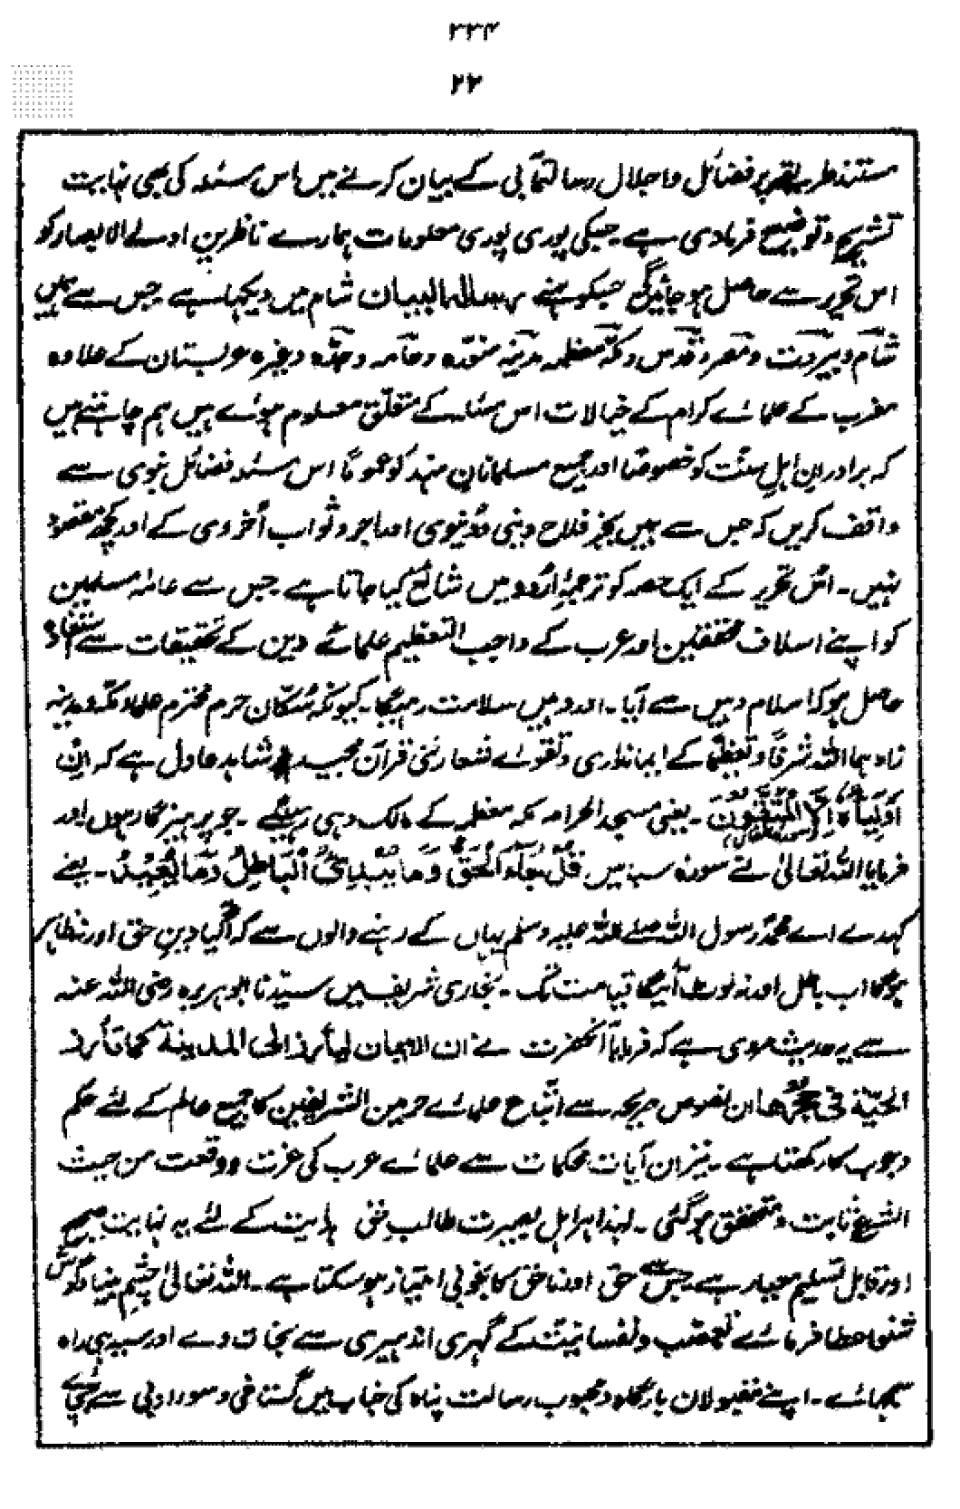 ۲۳۴
۲۲
مستند طریقہ پر فضائل و اجلال رسالتمآبی کے بیان کرنے میں اس مسئلہ کی بھی نہایت
تشریح و توضیح فرمادی ہے۔ جسکی پوری پوری معلومات ہمارے ناظرین اولے الابصار کو
اس تحریر سے حاصل ہو جائیگی جسکو ہمنے رسالہ البیان شام میں دیکھا ہے جس سے ہمیں
شام و بیروت و مصر و قدس و مکہ معظمہ مدینہ منورہ و عامہ و جدہ وغیرہ عربستان کے علاوہ
مغرب کے علمائے کرام کے خیالات اس مسئلہ کے متعلق معلوم ہوئے ہیں ہم چاہتے ہیں
کہ برادران اہل سنت کو خصوصاً اور جمیع مسلمانان ہند کو عموماً اس مسئلہ فضائل نبوی سے
واقف کریں کہ جس سے ہمیں بجز فلاح دینی و دنیوی اور اجر و ثواب اُخروی کے اور کچھ مقصود
نہیں۔ اس تحریر کے ایک حصہ کو ترجمۂ اُردو میں شائع کیا جاتا ہے جس سے عامۂ مسلمین
کو اپنے اسلاف محققین اور عرب کے واجب التعظیم علمائے دین کے تحقیقات سے استفادہ
حاصل ہو کہ اسلام وہیں سے آیا۔ اور وہیں سلامت رہیگا۔ کیونکہ سُکّان حرم محترم علماء مکہ و مدینہ
زادہما اللہ شرفاً و تعظیماً کے ایمانداری و تقوے شعاری قرآن مجید شاہد عادل ہے کہ اِنْ
اَوْلِیَآءُہٗ اِلَّا الْمُتَّقُوْنَ۔ یعنی مسجد الحرام مکہ معظمہ کے مالک وہی رہینگے۔ جو پرہیزگار ہوں اور
فرمایا اللہ تعالیٰ نے سورہ سبا میں قُلْ جَآءَ الْحَقُّ وَمَا یُبْدِئُ الْبَاطِلُ وَمَا یُعِیْدُ۔ یعنے
کہدے اے محمد رسول اللہ صلے اللہ علیہ وسلم یہاں کے رہنے والوں سے کہ آگیا دین حق اور نہ ظاہر
ہوگا اب باطل اور نہ لوٹ آئیگا قیامت تک۔ بخاری شریف میں سیدنا ابو ہریرہ رضی اللہ عنہ
سے یہ حدیث مروی ہے کہ فرمایا آنحضرت نے ان الایمان لیأرز الی المدینۃ کما تأرز
الحیّۃ فی جحرھا ان نصوص صریحہ سے اتباع علمائے حرمین الشریفین کا جمیع عالم کے لئے حکم
وجوب کا رکھتا ہے۔ نیز ان آیات محکمات سے علمائے عرب کی عزت و وقعت من حیث
الشرع ثابت و متحقق ہو گئی۔ لہذا ہر اہل بصیرت طالب حق ہدایت کے لئے یہ نہایت صحیح
اور قابل تسلیم معیار ہے جس سے حق اور ناحق کا بخوبی امتیاز ہو سکتا ہے۔ اللہ تعالیٰ چشم بینا و گوش
شنوا عطا فرمائے تعصب و نفسانیت کے گہری اندہیری سے نجات دے اور سیدہی راہ
سجھائے۔ اپنے مقبولان بارگاہ و محبوب رسالت پناہ کی جناب میں گستاخی و سوء ادبی سے بچائے